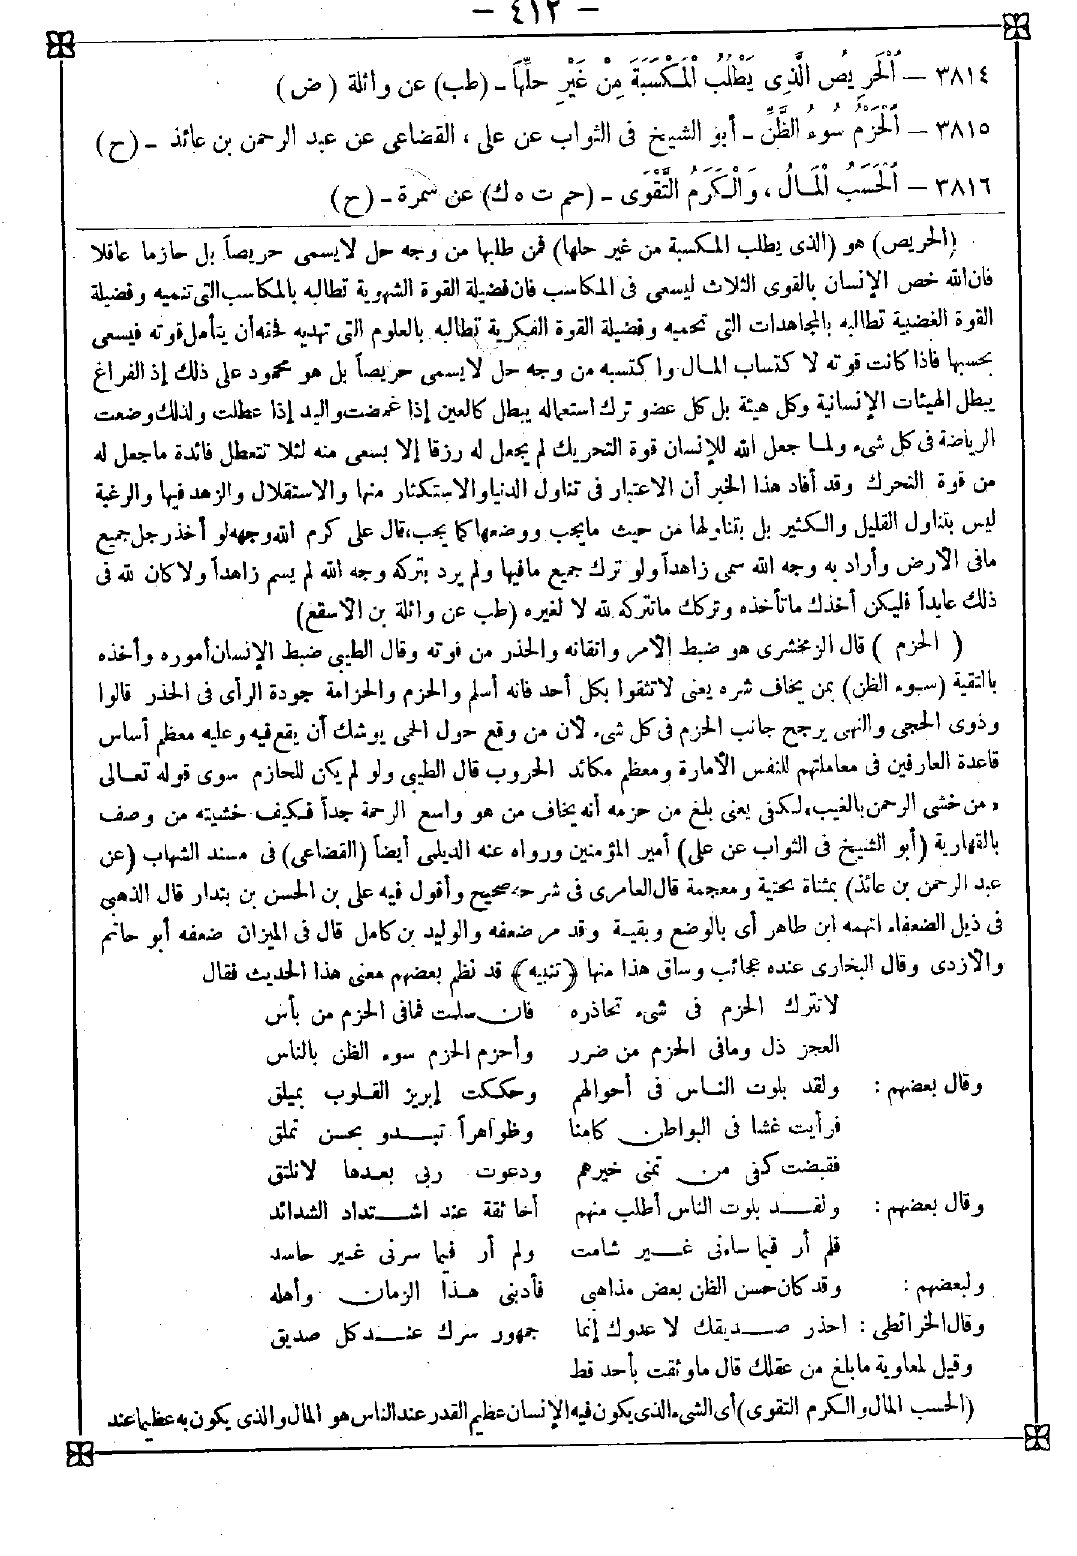 - ٤١٢ -
٣٨١٤ - اَلْحَرِيصُ الَّذِى يَطْلُبُ الْمَكْسَبَةَ مِنْ غَيْرِ حِلِّهَا - (طب) عن واثلة (ض)
٣٨١٥ - اَلْحَزْمُ سُوءُ الظَّنِّ - أبو الشيخ فى الثواب عن على ، القضاعى عن عبد الرحمن بن عائذ - (ح)
٣٨١٦ - اَلْحَسَبُ الْمَالُ ، وَالْكَرَمُ التَّقْوَى - (حم ت ه ك) عن سمرة - (ح)
(الحريص) هو (الذى يطلب المكسبة من غير حلها) فمن طلبها من وجه حل لايسمى حريصاً بل حازما عاقلا
فان الله خص الإنسان بالقوى الثلاث ليسعى فى المكاسب فان فضيلة القوة الشهوية تطالبه بالمكاسب التى تنميه وفضيلة
القوة الغضبية تطالبه بالمجاهدات التى تحميه وفضيلة القوة الفكرية تطالبه بالعلوم التى تهديه فحقه أن يتأمل قوته فيسعى
بحسبها فاذا كانت قوته لا كتساب المال واكتسبه من وجه حل لايسمى حريصاً بل هو محمود على ذلك إذ الفراغ
يبطل الهيئات الإنسانية وكل هيئة بل كل عضو ترك استعماله يبطل كالعين إذا غمضت واليد إذا عطلت ولذلك وضعت
الرياضة فى كل شىء ولما جعل الله للإنسان قوة التحريك لم يجعل له رزقا إلا بسعى منه لئلا تتعطل فائدة ماجعل له
من قوة التحرك وقد أفاد هذا الخبر أن الاعتبار فى تناول الدنيا والاستكثار منها والاستقلال والزهد فيها والرغبة
ليس بتناول القليل والكثير بل بتناولها من حيث مايجب ووضعها كما يجب، قال على كرم الله وجهه لو أخذ رجل جميع
مافى الأرض وأراد به وجه الله سمى زاهداً ولو ترك جميع مافيها ولم يرد بتركه وجه الله لم يسم زاهداً ولا كان لله فى
ذلك عابداً فليكن أخذك ماتأخذه وتركك ماتتركه لله لا لغيره (طب عن واثلة بن الأسقع)
( الحزم ) قال الزمخشرى هو ضبط الأمر وإتقانه والحذر من فوته وقال الطيبى ضبط الإنسان أموره وأخذه
بالثقية (سوء الظن) بمن يخاف شره يعنى لاتثقوا بكل أحد فانه أسلم والحزم والحزامة جودة الرأى فى الحذر قالوا
وذوى الحجى والنهى يرجح جانب الحزم فى كل شىء لأن من وقع حول الحمى يوشك أن يقع فيه وعليه معظم أساس
قاعدة العارفين فى معاملتهم للنفس الأمارة ومعظم مكائد الحروب قال الطيبى ولو لم يكن للحازم سوى قوله تعالى
« من خشى الرحمن بالغيب» لكفى يعنى بلغ من حزمه أنه يخاف من هو واسع الرحمة جداً فكيف خشيته من وصف
بالقهارية (أبو الشيخ فى الثواب عن على) أمير المؤمنين ورواه عنه الديلمى أيضاً (القضاعى) فى مسند الشهاب (عن
عبد الرحمن بن عائذ) بمثناة تحتية ومعجمة قال العامرى فى شرحه صحيح وأقول فيه على بن الحسن بن بندار قال الذهبى
فى ذيل الضعفاء اتهمه ابن طاهر أى بالوضع وبقية وقد مر ضعفه والوليد بن كامل قال فى الميزان ضعفه أبو حاتم
والأزدى وقال البخارى عنده عجائب وساق هذا منها (تنبيه) قد نظم بعضهم معنى هذا الحديث فقال
لاتترك الحزم فى شىء تحاذره فان سلمت فمافى الحزم من بأس
العجز ذل ومافى الحزم من ضرر وأحزم الحزم سوء الظن بالناس
وقال بعضهم : ولقد بلوت الناس فى أحوالهم وحككت إبريز القلوب بميلق
فرأيت غشا فى البواطن كامنا وظواهراً تبدو بحسن تملق
فقبضت كفى من تمنى خيرهم ودعوت ربى بعدها لانلتق
وقال بعضهم : ولقد بلوت الناس أطلب منهم أخا ثقة عند اشتداد الشدائد
فلم أر فيما ساءنى غير شامت ولم أر فيما سرنى غير حاسد
ولبعضهم : وقد كان حسن الظن بعض مذاهبى فأدبنى هذا الزمان وأهله
وقال الخرائطى : احذر صديقك لا عدوك إنما جمهور سرك عند كل صديق
وقيل لمعاوية مابلغ من عقلك قال ماوثقت بأحد قط
(الحسب المال والكرم التقوى) أى الشىء الذى يكون فيه الإنسان عظيم القدر عند الناس هو المال والذى يكون به عظيما عند